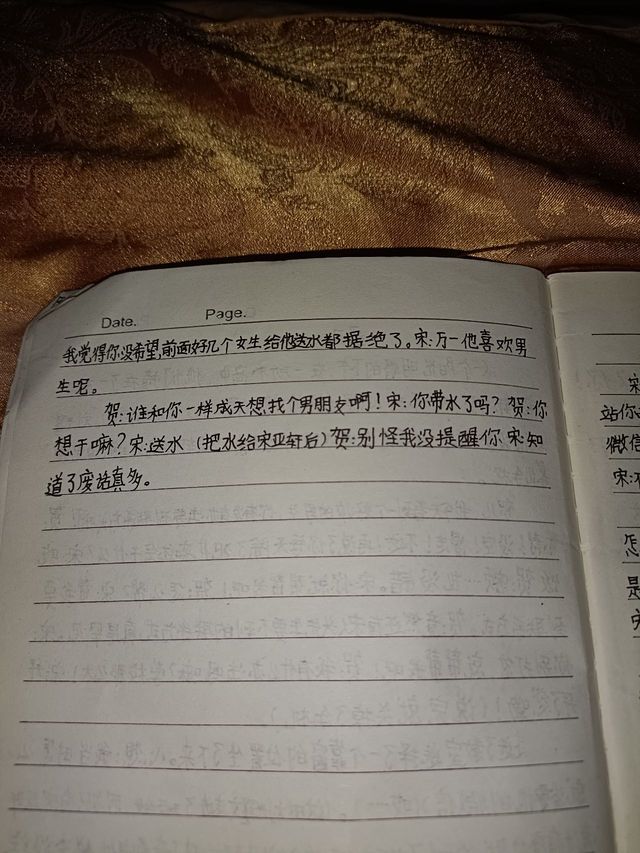 Date. Page.
我觉得你没希望,前面好几个女生给他送水都据绝了。宋:万一他喜欢男
生呢。
贺:谁和你一样成天想找个男朋友啊!宋:你带水了吗?贺:你
想干嘛?宋:送水(把水给宋亚轩后)贺:别怪我没提醒你 宋:知
道了废话真多。
宋
站你
微信
宋:不
怎
是